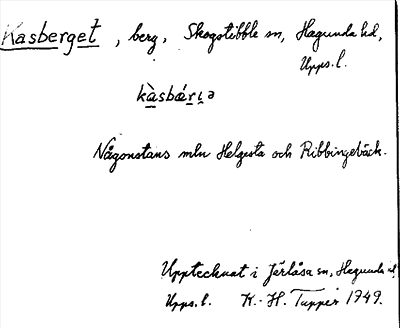 Kasberget, berg, Skogstibble sn, Hagunda hd,
Upps. l.
kàsbǽrıə
Någonstans mln Helgesta och Ribbingebäck.
Upptecknat i Järlåsa sn, Hagunda hd,
Upps. l. K.-H. Tupper 1949.